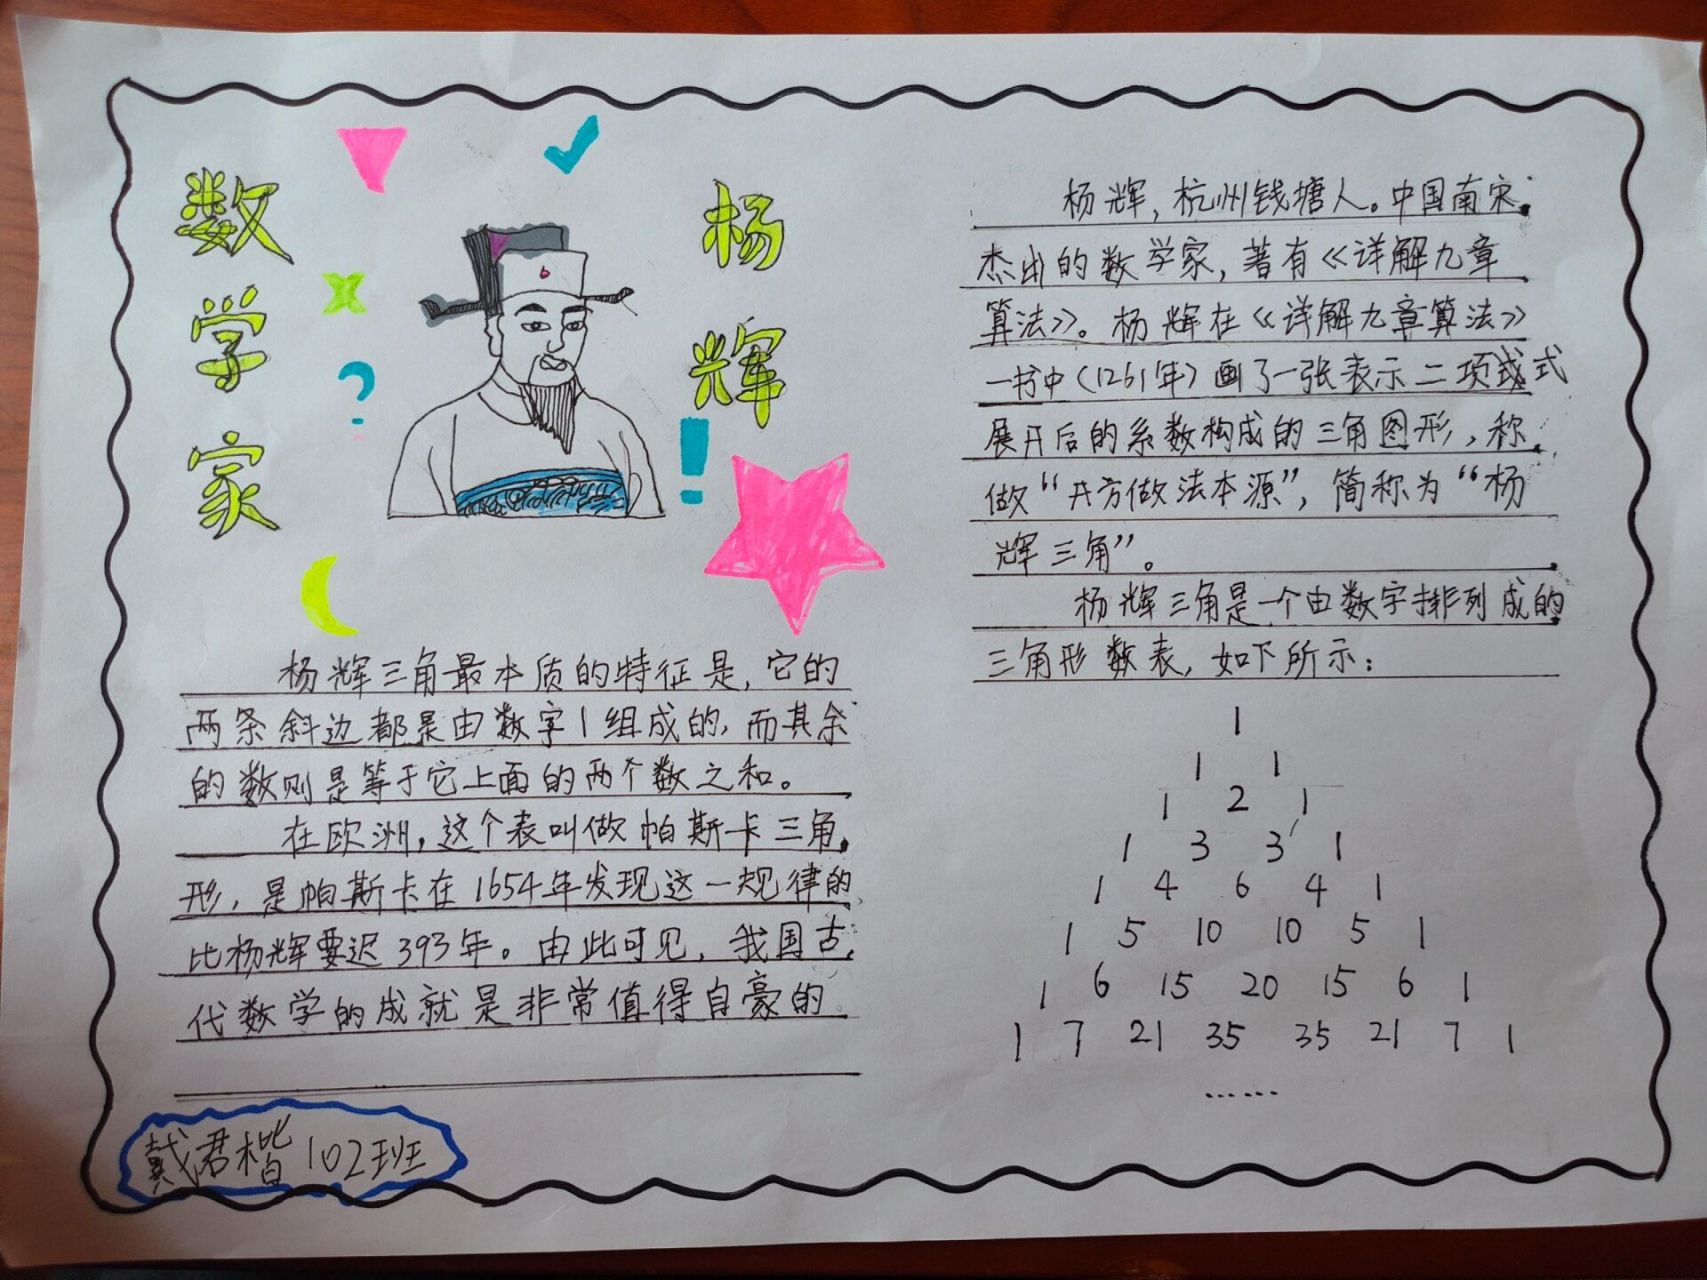 数学家
杨辉
杨辉三角最本质的特征是,它的
两条斜边都是由数字1组成的,而其余
的数则是等于它上面的两个数之和。
在欧洲,这个表叫做帕斯卡三角
形,是帕斯卡在1654年发现这一规律的
比杨辉要迟393年。由此可见,我国古
代数学的成就是非常值得自豪的
戴君楷 102班
杨辉,杭州钱塘人。中国南宋
杰出的数学家,著有《详解九章
算法》。杨辉在《详解九章算法》
一书中(1261年)画了一张表示二项式
展开后的系数构成的三角图形,称
做“开方做法本源”,简称为“杨
辉三角”。
杨辉三角是一个由数字排列成的
三角形数表,如下所示:
1
1 1
1 2 1
1 3 3 1
1 4 6 4 1
1 5 10 10 5 1
1 6 15 20 15 6 1
1 7 21 35 35 21 7 1
……